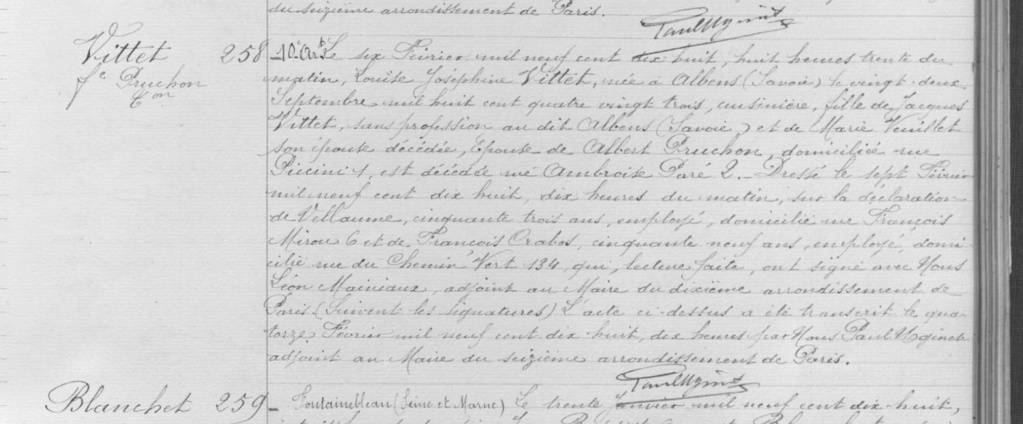 du seizième arrondissement de Paris.
Vittet
fe Pruchon
Con
258 _ 10e Art Le six Février mil neuf cent dix huit, huit heures trente du
matin, Louise Joséphine Vittet, née à Albens (Savoie) le vingt-deux
Septembre mil huit cent quatre vingt trois, cuisinière, fille de Jacques
Vittet, sans profession au dit Albens (Savoie,) et de Marie Vuillet
son épouse décédée, Epouse de Albert Pruchon, domiciliée rue
Piccini 1, est décédée rue Ambroise Paré 2. _ Dressé le sept Février
mil neuf cent dix huit, dix heures du matin, sur la déclaration
de Vellaume, cinquante trois ans, employé, domicilié rue François
Miron 6 et de François Crabos, cinquante neuf ans, employé, domi-
cilié rue du Chemin Vert 134, qui, lecture faite, ont signé avec Nous
Léon Mainiaux, adjoint au Maire du dixième arrondissement de
Paris (Suivent les signatures) L'acte ci-dessus a été transcrit le qua-
torze Février mil neuf cent dix huit, dix heures par Nous Paul
adjoint au Maire du seizième arrondissement de Paris.
Blanchet 259 _ Fontainebleau (Seine et Marne) Le trente Janvier mil neuf cent dix-huit,